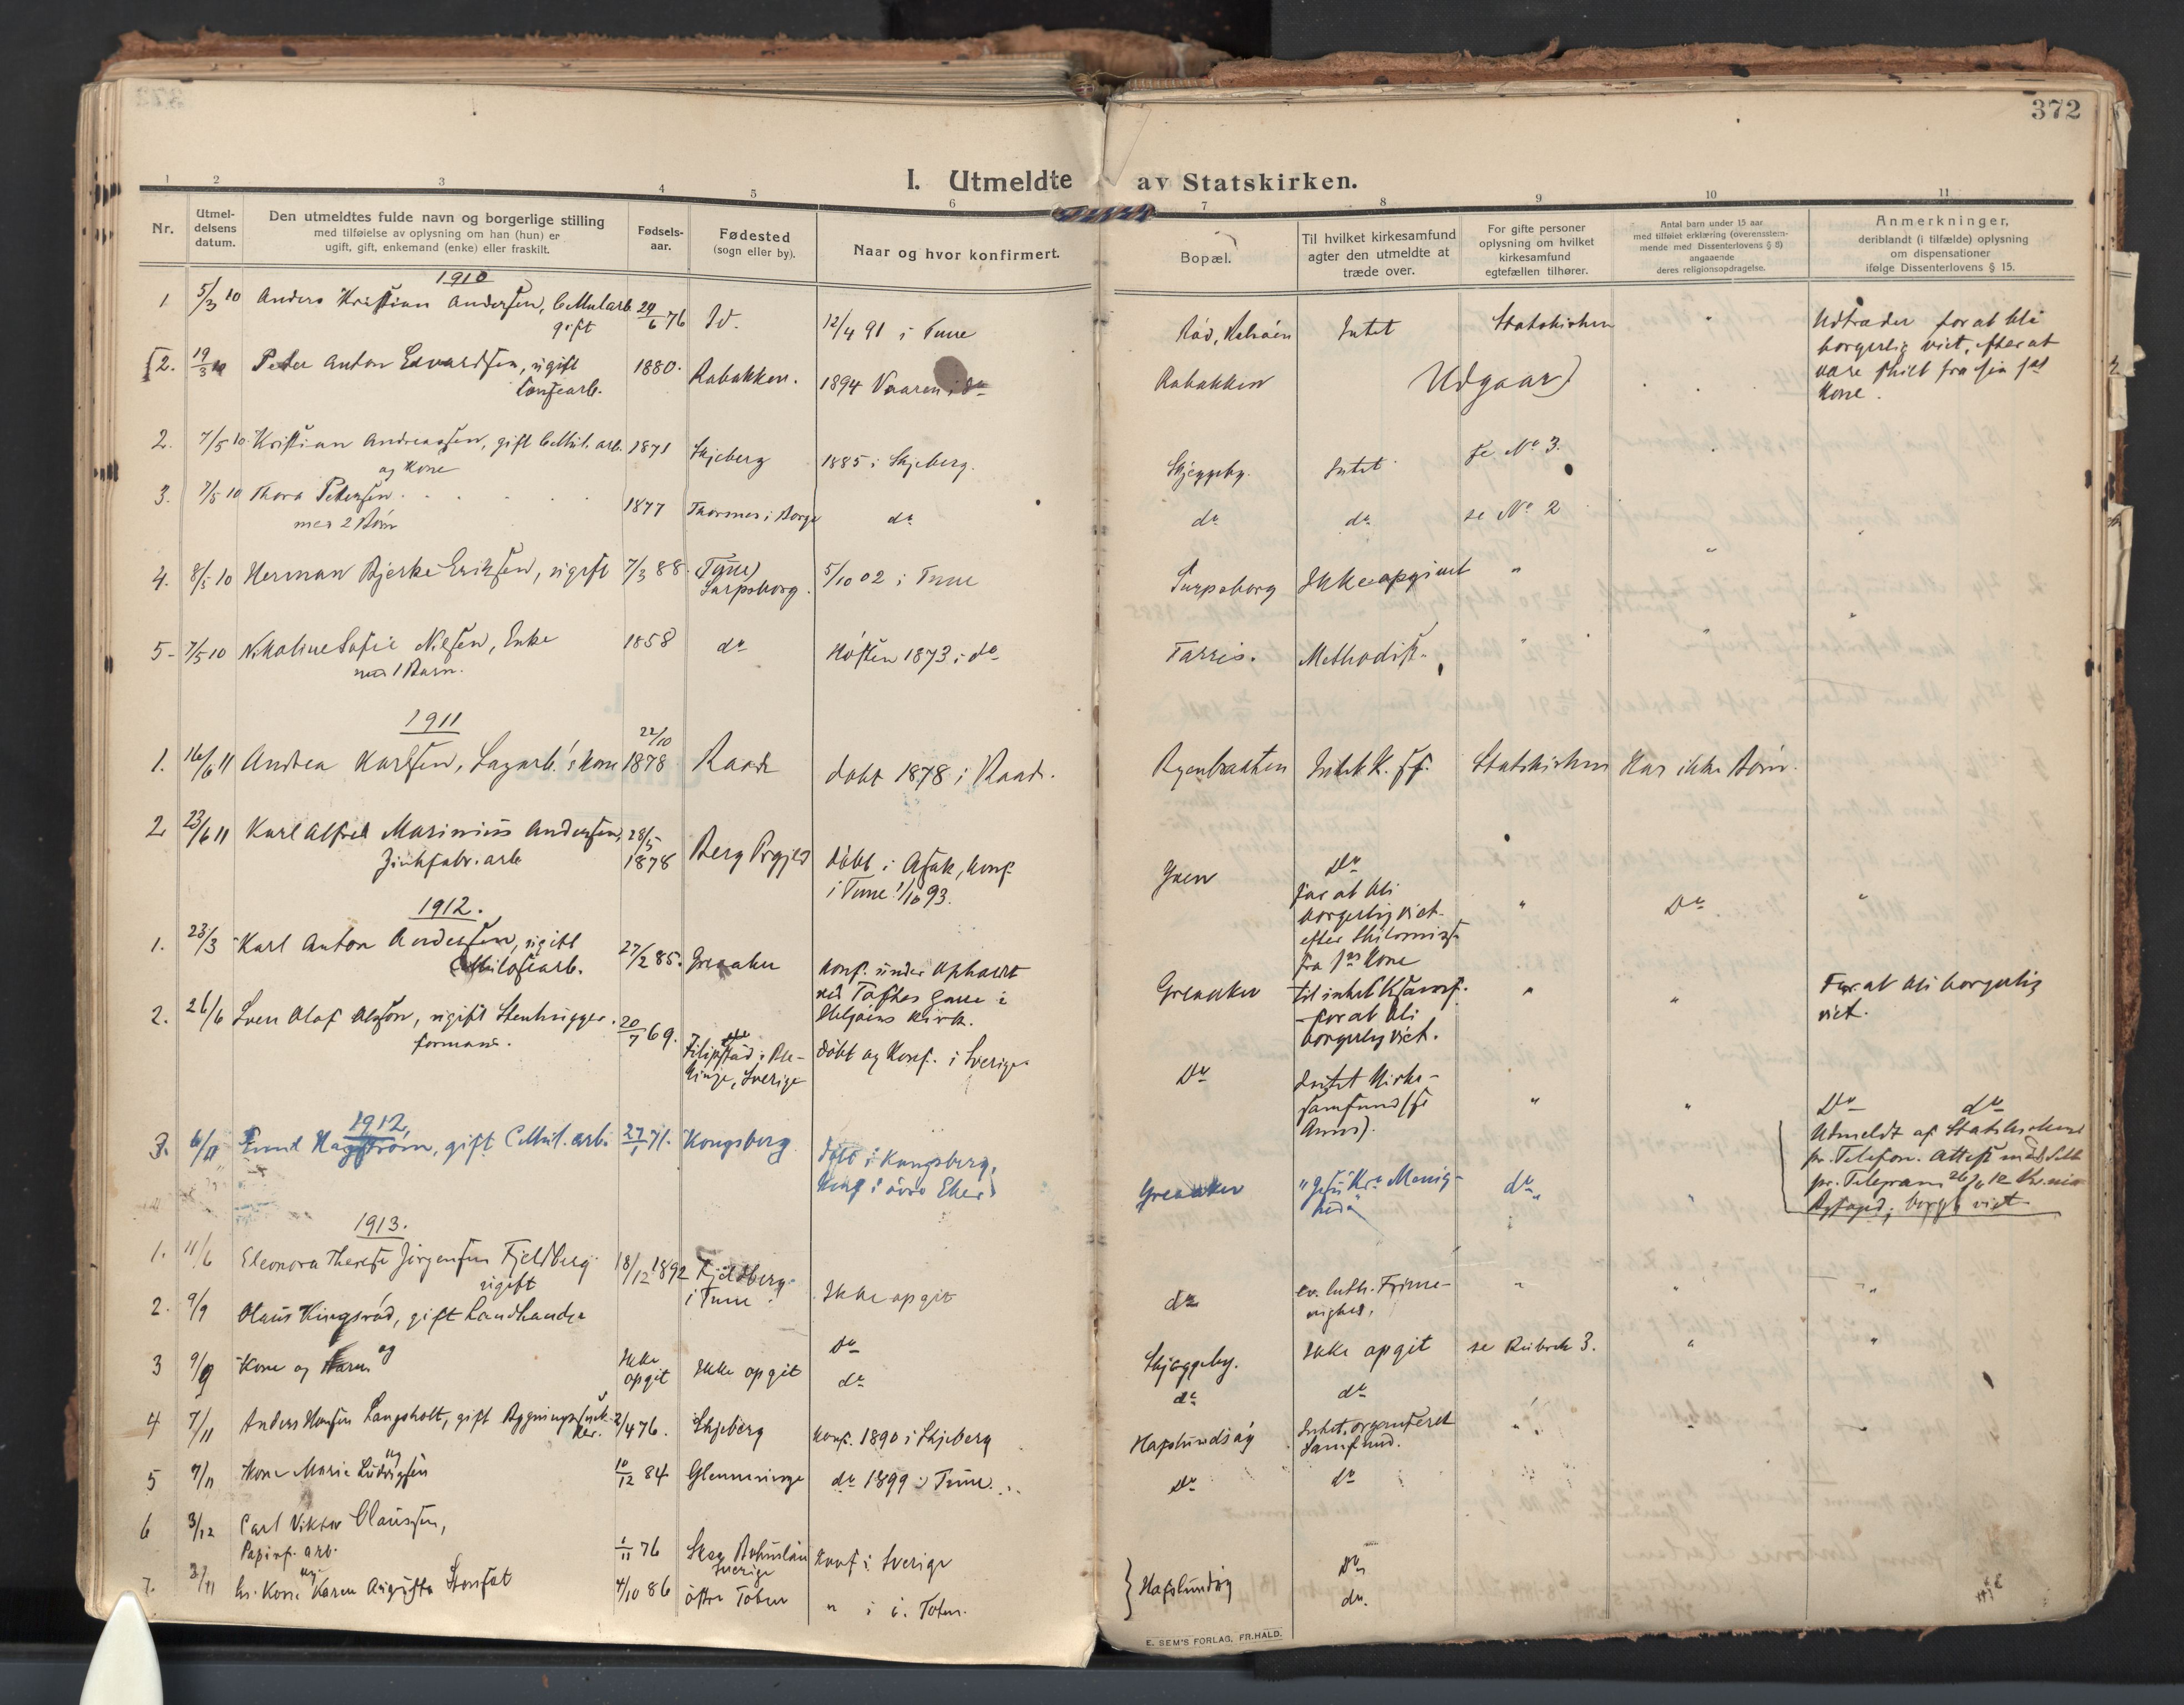 372
I. Utmeldte av Statskirken.
1 2 3 4 5 6 7 8 9 10 11
Nr.
Utmel-
delsens
datum.
Den utmeldtes fulde navn og borgerlige stilling
med tilføielse av oplysning om han (hun) er
ugift, gift, enkemand (enke) eller fraskilt.
Fødsels-
aar.
Fødested
(sogn eller by).
Naar og hvor konfirmert.
Bopæl.
Til hvilket kirkesamfund
agter den utmeldte at
træde over.
For gifte personer
oplysning om hvilket
kirkesamfund
egtefællen tilhører.
Antal barn under 15 aar
med tilføiet erklæring (overensstem-
mende med Dissenterlovens § 8)
angaaende
deres religionsopdragelse.
Anmerkninger,
deriblandt (i tilfælde) oplysning
om dispensationer
ifølge Dissenterlovens § 15.
1910
1. 5/3 10 Anders Kristian Andersen, Cellularb. 29/6 76 Id. 12/4 91 i Tune Intet Statskirken
gift
Udtræder for at bli
borgerlig viet, efter at
være skilt fra sin 1st
Kone.
2. 19/3 10 Peter Anton Edvardsen, ugift 1880. Rabakken. 1894 Vaaren i do Rabakken Udgaar)
2. 7/5 10 Kristian Andreassen, gift Cellul. arb. 1871 Skjeberg 1885 i Skjeberg. Skjeggeby. Intet se No 3.
og Kone
3. 7/5 10 Thora Petersen 1877 i Borge do do do se No 2
med 2 Børn
4. 8/5 10 Herman Bjerke Eriksen, ugift 7/3 88 (Tune) 5/10 02 i Tune Sarpsborg Ikke opgivet "
Sarpsborg.
5. 7/5 10 Nikoline Sofie Nilsen, Enke 1858 do Høsten 1873 i do Tarris. Methodist.
med 1 Barn.
1911
1. 16/6 11 Andrea Karlsen, kone 22/10 1878 Raade døbt 1878 i Raade. Intet K. sf. Statskirken Har ikke Børn.
2 23/6 11 Karl Alfred Marinius Andersen, 28/5 1878 Berg Prgjeld døbt i Asak, konf.
Zinkfabr. arb.
i Tune 1/10 93.
Do
for at bli
borgerlig viet
efter Skilsmisse
fra 1st Kone
" Do "
1912.
1. 23/3 Karl Anton Andersen, ugift 27/2 85. Greaaker konf. under Ophold
Greaaker til intet Ksamf.
- for at bli
borgerlig viet.
For at bli borgerlig
viet.
2. 26/6 Sven Olof Olsson, ugift Stenhugger- 20/7 69. døbt og Konf. i Sverige
formand.
Filipstad i Ble-
kinge, Sverige
Do Intet Kirke-
samfund (se
Anm).
Do do
1912,
3. 6/11 Haggstrøm, gift Cellul. arb. 27/1 71. Kongsberg døbt i Kongsberg,
konf. i øvre Eker
Greaaker "Jesu Kr. Menig-
hed" do
Utmeldt af Statskirken
pr. Telefon. Attest
pr. Telegram 26/6 12
borgl. viet
1913.
1. 11/6 Eleonora Therese Jørgensen Fjeldberg 18/12 1892 Fjeldberg Ikke opgit do ev. luth. Frime-
ugift
i Tune
nighed.
2. 9/9 Olaus Kingsrød, gift Landhandler Do Skjeggeby. Ikke opgit se Rubrik 3.
og
3 9/9 Kone og Barn Ikke opgit Ikke opgit do do do
4 7/11 Anders Hansen Langsholt, gift Bygningssnek- 2/4 76. Skjeberg konf. 1890 i Skjeberg Hafslundsøy Intet organiseret
ker.
Samfund.
og
5 7/11 Kone Marie Ludvigsen 10/12 84 Glemminge do 1899 i Tune. Do do
6 3/12 Carl Viktor Claussen, 1/11 76 Bohuslän konf. i Sverige Do
Papirf. arb.
Sverige
og
7. 3/11 hs. Kone Karen Augusta 4/10 86 østre Toten " i ø. Toten. Hafslundsøy do.
E. SEM'S FORLAG, FR.HALD.